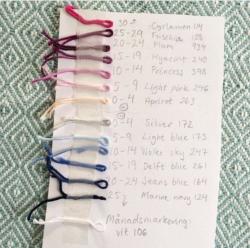 30 - Cyclamen 114
25-29 Fuschia 128
20-24 Plum 934
15-19 Hyacint 240
10-14 Princess 398
5-9 Light pink 246
0-4 Apricot 263
0-4 Silver 172
5-9 Light blue 173
10-14 Water sky 247
15-19 Delft blue 261
20-24 Jeans blue 164
25- Marine navy 124
Månadsmarkering:
vit 106